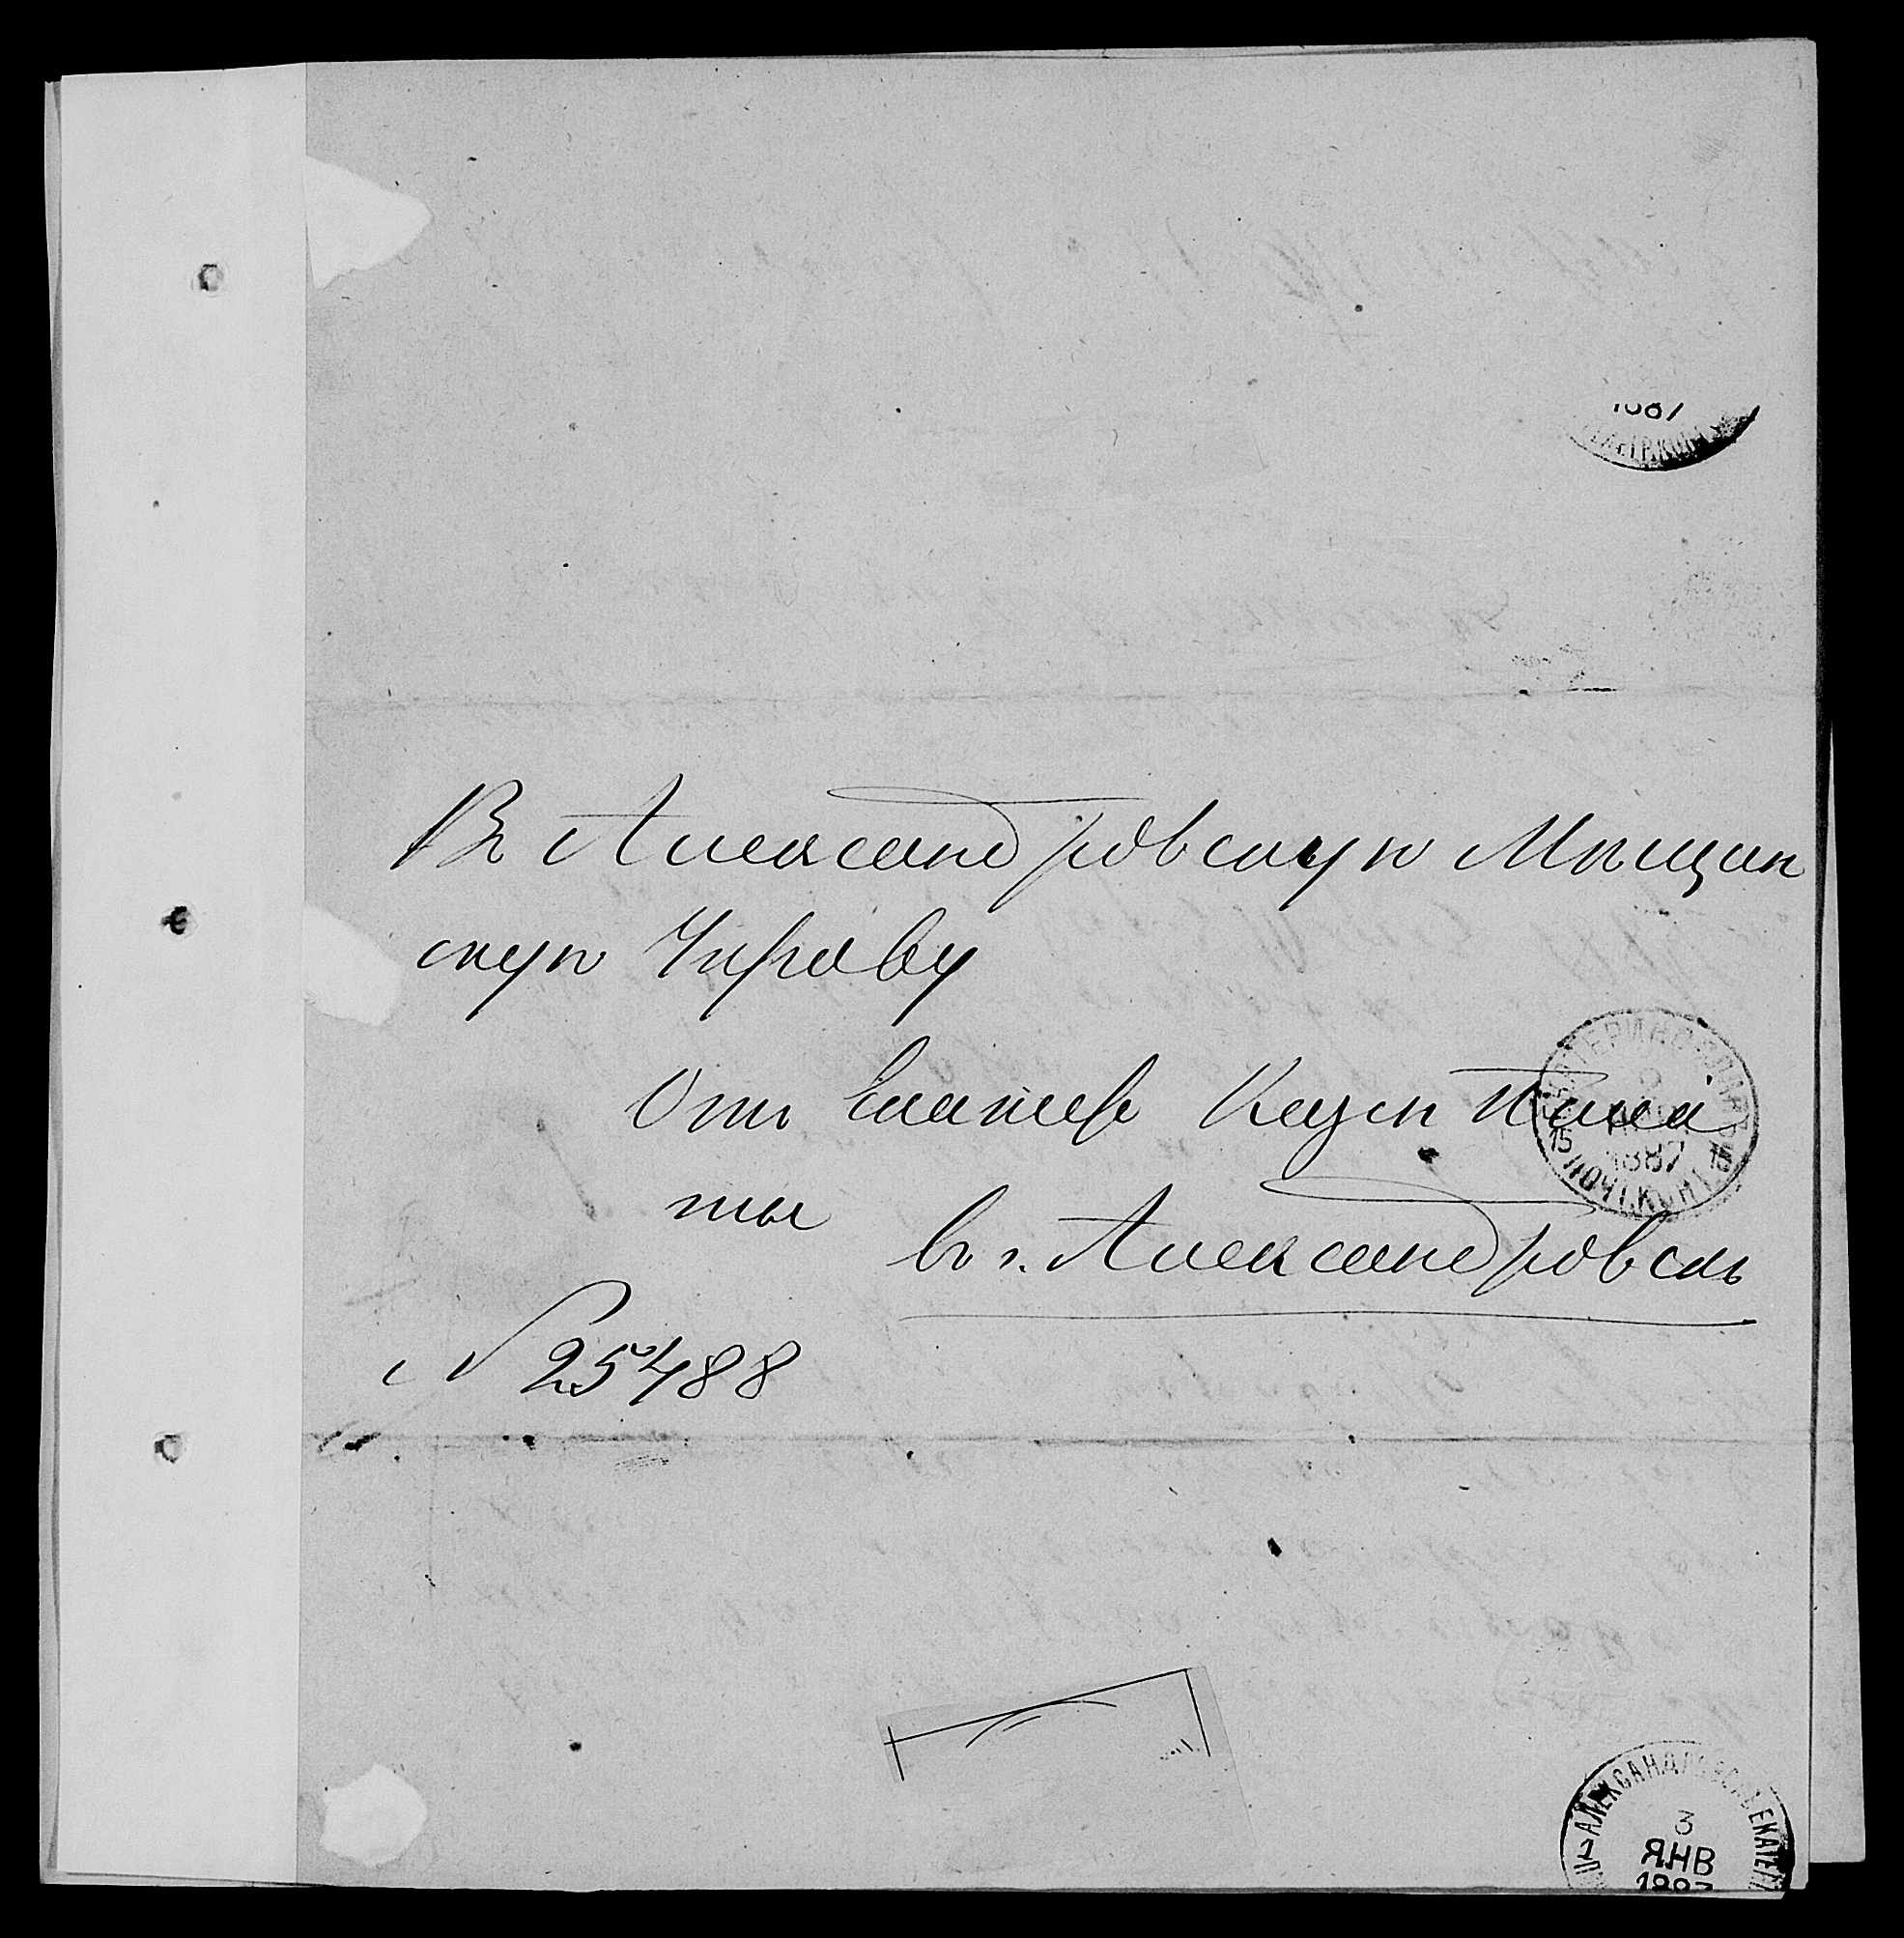 1887
Въ Александровскую Мѣщан
скую Управу
Отъ Екатер Казен Пала
ты
въ г. Александровскъ
№ 25488
ЕКАТЕРИНОСЛАВЪ
1887
15 15
ПОЧТ. КОНТ.
АЛЕКСАНДРОВСКЪ ЕКАТЕР
3
ЯНВ
1887